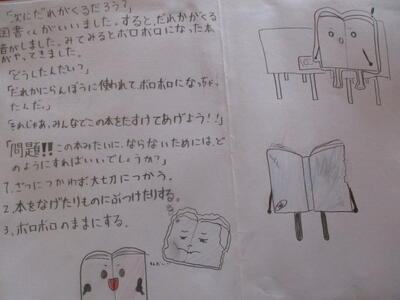 「次にだれがくるだろう？」
図書くんがいいました。すると、だれかがくる
音がしました。みてみるとボロボロになった本
がやってきました。
「どうしたんだい？」
「だれかにらんぼうに使われて、ボロボロになっちゃっ
たんだ。」
「それじゃあ、みんなでこの本をたすけてあげよう！」
「問題!! この本みたいに、ならないためには、ど
のようにすればいいでしょうか？」
1. ざつにつかわず大切につかう。
2. 本をなげたりものにぶつけたりする。
3. ボロボロのままにする。